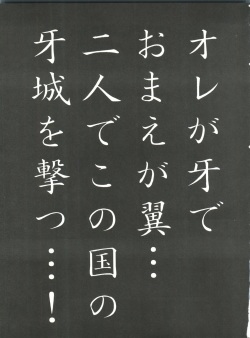 オレが牙で
おまえが翼…
二人でこの国の
牙城を撃つ…!